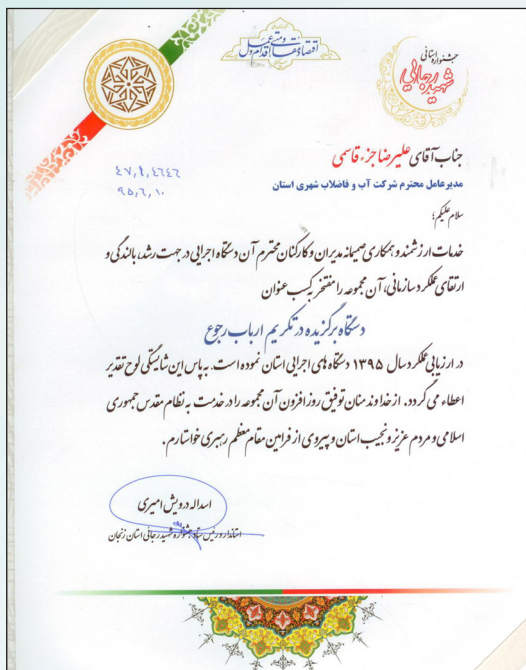 اقتصاد مقاومتی اقدام و عمل
جشنواره استانی
شهید رجائی
جناب آقای علیرضا جزء قاسمی
مدیرعامل محترم شرکت آب و فاضلاب شهری استان
۴۷,۱,۴۶۴۶
۹۵,۶,۱۰
سلام علیکم؛
خدمات ارزشمند و همکاری صمیمانه مدیران و کارکنان محترم آن دستگاه اجرایی در جهت رشد، بالندگی و
ارتقای عملکرد سازمانی، آن مجموعه را مفتخر به کسب عنوان
دستگاه برگزیده در تکریم ارباب رجوع
در ارزیابی عملکرد سال ۱۳۹۵ دستگاه های اجرایی استان نموده است. به پاس این شایستگی لوح تقدیر
اعطاء می گردد. از خداوند منان توفیق روز افزون آن مجموعه را در خدمت به نظام مقدس جمهوری
اسلامی و مردم عزیز و نجیب استان و پیروی از فرامین مقام معظم رهبری خواستارم.
اسداله درویش امیری
استاندار و رئیس ستاد جشنواره شهید رجائی استان زنجان